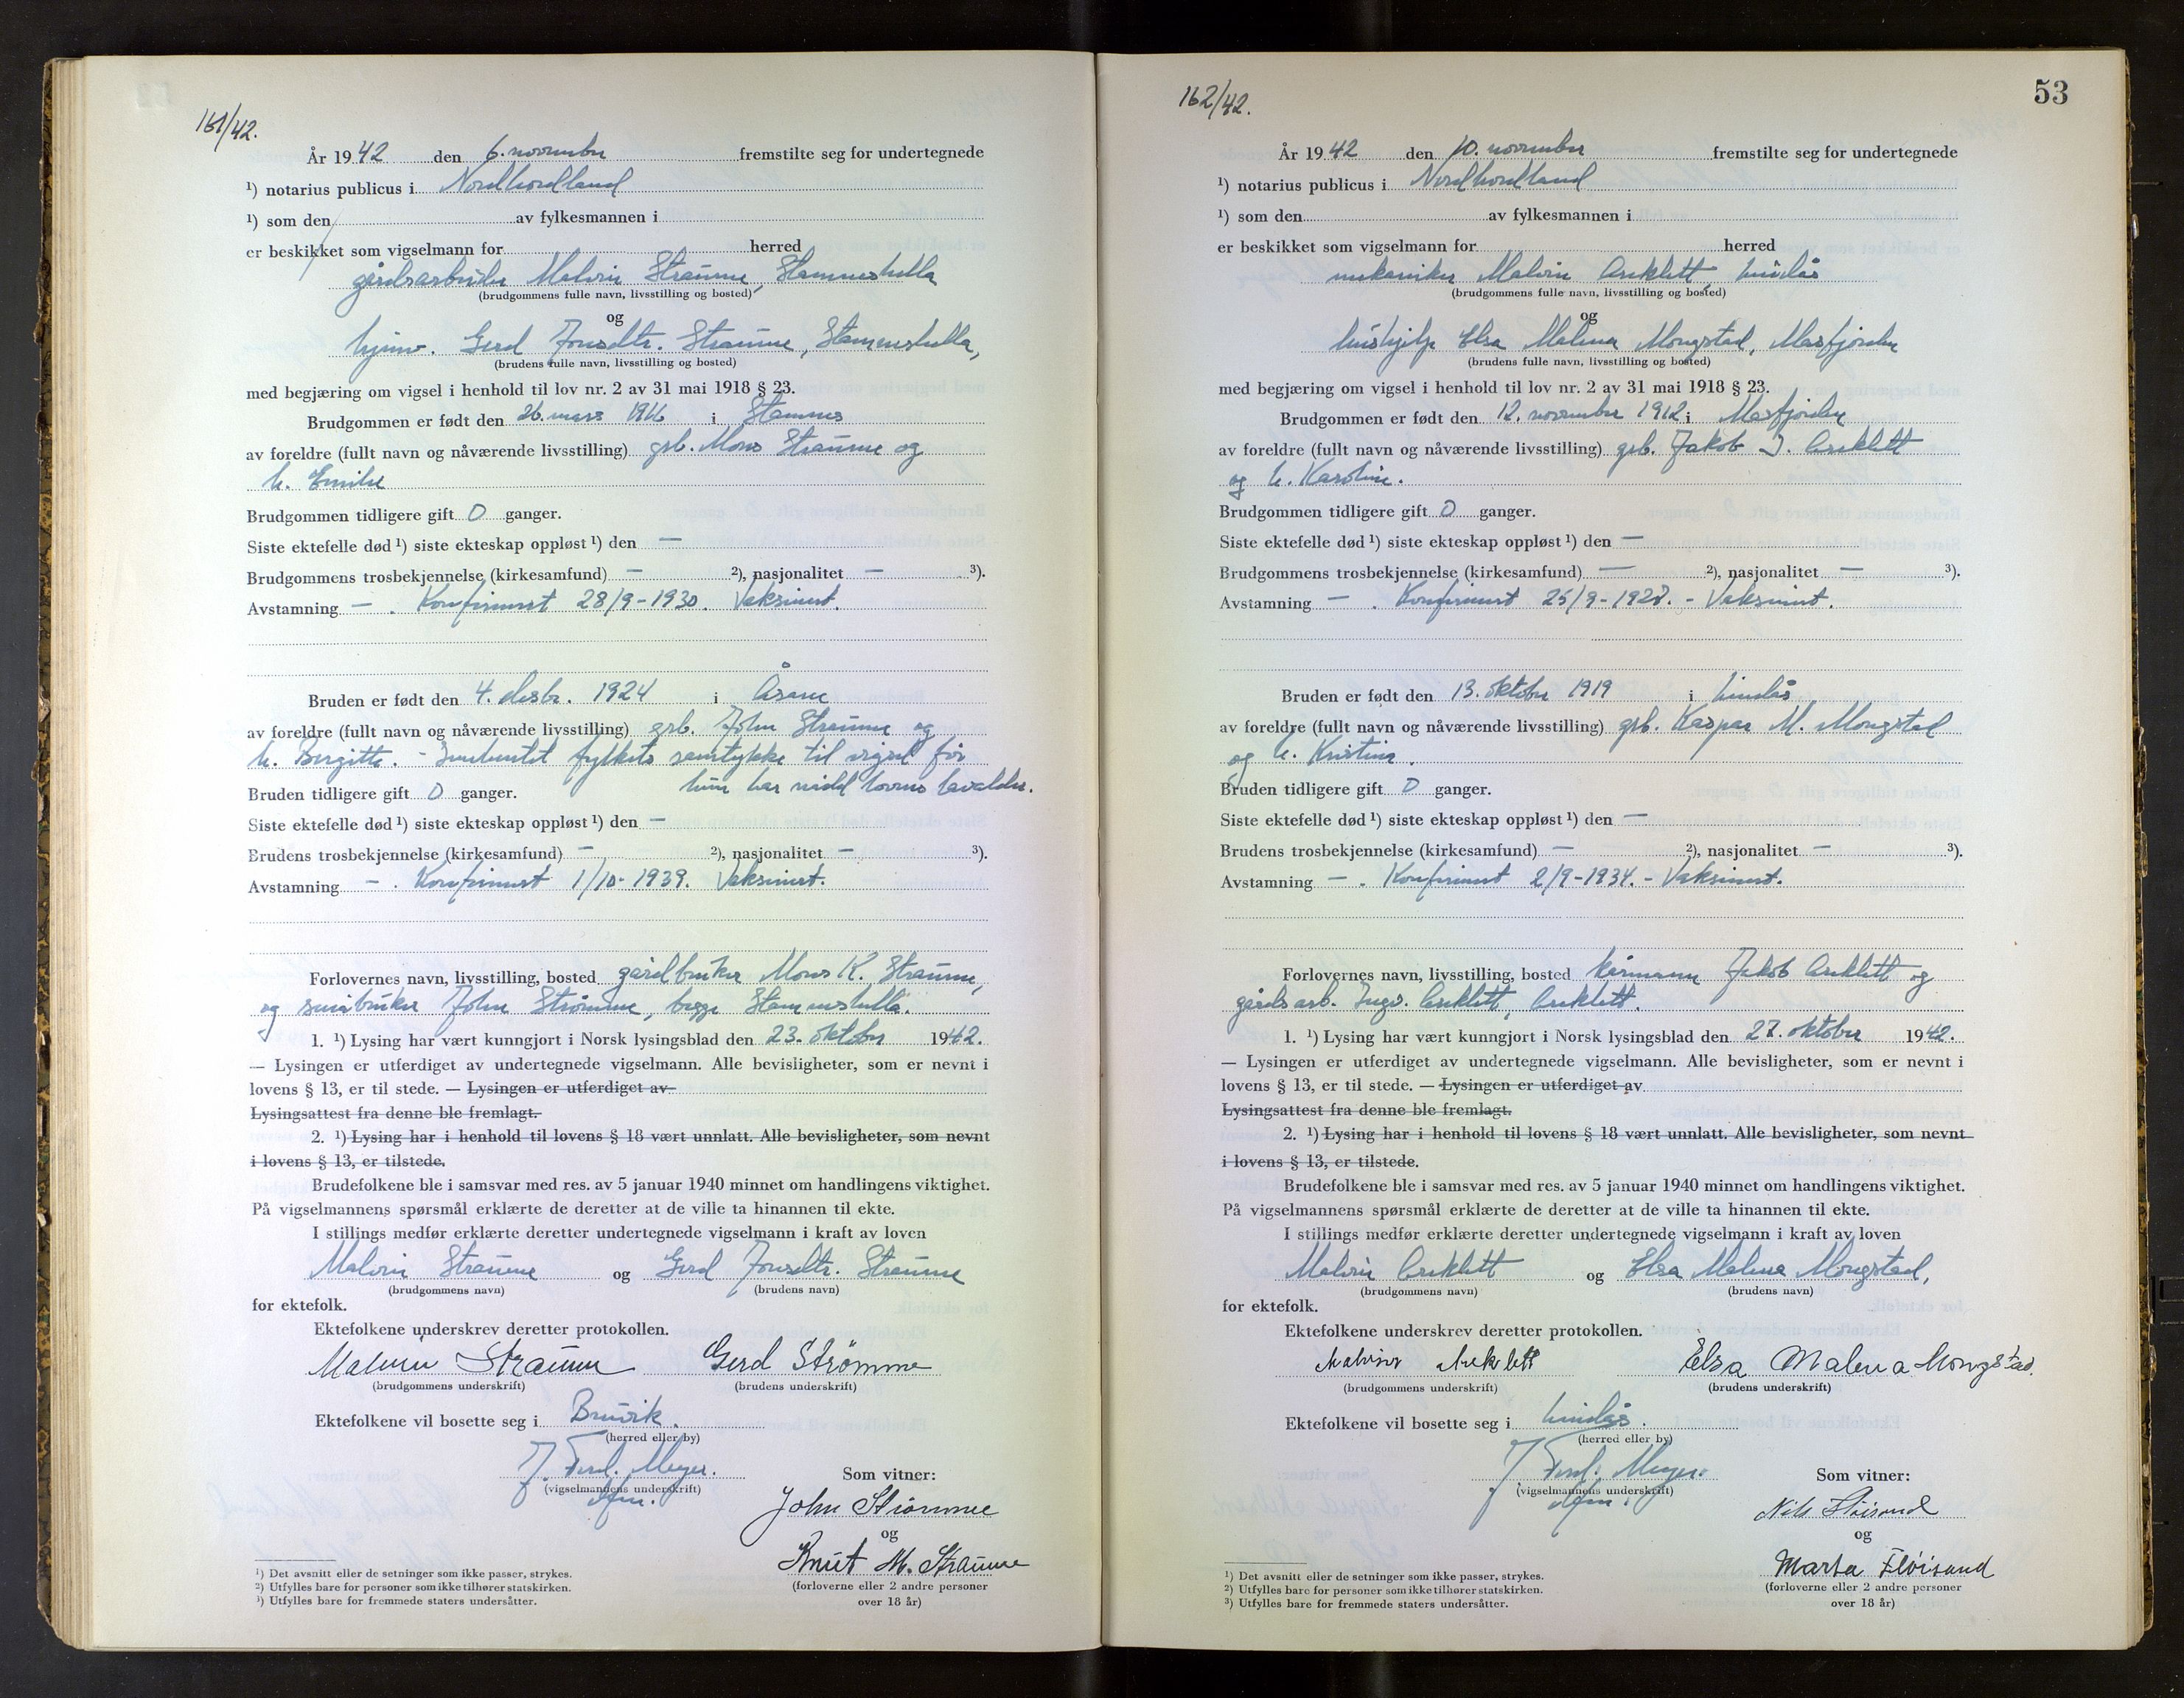 161/42.
År 1942 den 6. november fremstilte seg for undertegnede
¹) notarius publicus i Nordhordland
¹) som den av fylkesmannen i
er beskikket som vigselmann for herred
gårdsarbeider Malvin Straume, Stamneshella
(brudgommens fulle navn, livsstilling og bosted)
og
hjemv. Gerd Jonsdtr. Straume, Stamneshella,
(brudens fulle navn, livsstilling og bosted)
med begjæring om vigsel i henhold til lov nr. 2 av 31 mai 1918 § 23.
Brudgommen er født den 26. mars 1916 i Stamnes
av foreldre (fullt navn og nåværende livsstilling) grb. Mons Straume og
h. Emilie
Brudgommen tidligere gift 0 ganger.
Siste ektefelle død ¹) siste ekteskap oppløst ¹) den —
Brudgommens trosbekjennelse (kirkesamfund) — ²), nasjonalitet — ³).
Avstamning — . Konfirmert 28/9-1930. Vaksinert.
Bruden er født den 4. desbr. 1924 i Åsane
av foreldre (fullt navn og nåværende livsstilling) grb. John Straume og
h. Bergitte. - Innhentet fylkets samtykke til vigsel før
hun har nådd lovens lavalder.
Bruden tidligere gift 0 ganger.
Siste ektefelle død ¹) siste ekteskap oppløst ¹) den —
Brudens trosbekjennelse (kirkesamfund) — ²), nasjonalitet — ³).
Avstamning — . Konfirmert 1/10-1939. Vaksinert.
Forlovernes navn, livsstilling, bosted gårdbruker Mons K. Straume,
og småbruker John Strømme, begge Stamneshella.
1. ¹) Lysing har vært kunngjort i Norsk lysingsblad den 23. oktober 1942.
— Lysingen er utferdiget av undertegnede vigselmann. Alle bevisligheter, som er nevnt i
lovens § 13, er til stede. — Lysingen er utferdiget av
Lysingsattest fra denne ble fremlagt.
2. ¹) Lysing har i henhold til lovens § 18 vært unnlatt. Alle bevisligheter, som nevnt
i lovens § 13, er tilstede.
Brudefolkene ble i samsvar med res. av 5 januar 1940 minnet om handlingens viktighet.
På vigselmannens spørsmål erklærte de deretter at de ville ta hinannen til ekte.
I stillings medfør erklærte deretter undertegnede vigselmann i kraft av loven
Malvin Straume og Gerd Jonsdtr. Straume
(brudgommens navn) (brudens navn)
for ektefolk.
Ektefolkene underskrev deretter protokollen.
Malvin Straume Gerd Strömme
(brudgommens underskrift) (brudens underskrift)
Ektefolkene vil bosette seg i Bruvik.
(herred eller by)
J. Ferd. Meyer.
(vigselmannens underskrift)
Som vitner:
John Strömme
og
Knut M. Straume
(forloverne eller 2 andre personer
over 18 år)
¹) Det avsnitt eller de setninger som ikke passer, strykes.
²) Utfylles bare for personer som ikke tilhører statskirken.
³) Utfylles bare for fremmede staters undersåtter.
162/42.
53
År 1942 den 10. november fremstilte seg for undertegnede
¹) notarius publicus i Nordhordland
¹) som den av fylkesmannen i
er beskikket som vigselmann for herred
mekaniker Malvin Areklett, Lindås
(brudgommens fulle navn, livsstilling og bosted)
og
hushjelp Elsa Malena Mongstad, Masfjorden
(brudens fulle navn, livsstilling og bosted)
med begjæring om vigsel i henhold til lov nr. 2 av 31 mai 1918 § 23.
Brudgommen er født den 12. november 1912 i Masfjorden
av foreldre (fullt navn og nåværende livsstilling) grb. Jakob I. Areklett
og h. Karoline.
Brudgommen tidligere gift 0 ganger.
Siste ektefelle død ¹) siste ekteskap oppløst ¹) den —
Brudgommens trosbekjennelse (kirkesamfund) — ²), nasjonalitet — ³).
Avstamning — . Konfirmert 25/9-1927. - Vaksinert.
Bruden er født den 13. oktober 1919 i Lindås
av foreldre (fullt navn og nåværende livsstilling) grb. Kaspar M. Mongstad
og h. Kristine.
Bruden tidligere gift 0 ganger.
Siste ektefelle død ¹) siste ekteskap oppløst ¹) den —
Brudens trosbekjennelse (kirkesamfund) — ²), nasjonalitet — ³).
Avstamning — . Konfirmert 2/9-1934. - Vaksinert.
Forlovernes navn, livsstilling, bosted kårmann Jakob Areklett og
gårdsarb. Ingv. Areklett, Areklett.
1. ¹) Lysing har vært kunngjort i Norsk lysingsblad den 27. oktober 1942.
— Lysingen er utferdiget av undertegnede vigselmann. Alle bevisligheter, som er nevnt i
lovens § 13, er til stede. — Lysingen er utferdiget av
Lysingsattest fra denne ble fremlagt.
2. ¹) Lysing har i henhold til lovens § 18 vært unnlatt. Alle bevisligheter, som nevnt
i lovens § 13, er tilstede.
Brudefolkene ble i samsvar med res. av 5 januar 1940 minnet om handlingens viktighet.
På vigselmannens spørsmål erklærte de deretter at de ville ta hinannen til ekte.
I stillings medfør erklærte deretter undertegnede vigselmann i kraft av loven
Malvin Areklett og Elsa Malena Mongstad,
(brudgommens navn) (brudens navn)
for ektefolk.
Ektefolkene underskrev deretter protokollen.
Malvin Areklett Elsa Malena Mongstad.
(brudgommens underskrift) (brudens underskrift)
Ektefolkene vil bosette seg i Lindås.
(herred eller by)
J. Ferd. Meyer.
(vigselmannens underskrift)
Som vitner:
Nils Fløisand
og
Marta Fløisand
(forloverne eller 2 andre personer
over 18 år)
¹) Det avsnitt eller de setninger som ikke passer, strykes.
²) Utfylles bare for personer som ikke tilhører statskirken.
³) Utfylles bare for fremmede staters undersåtter.